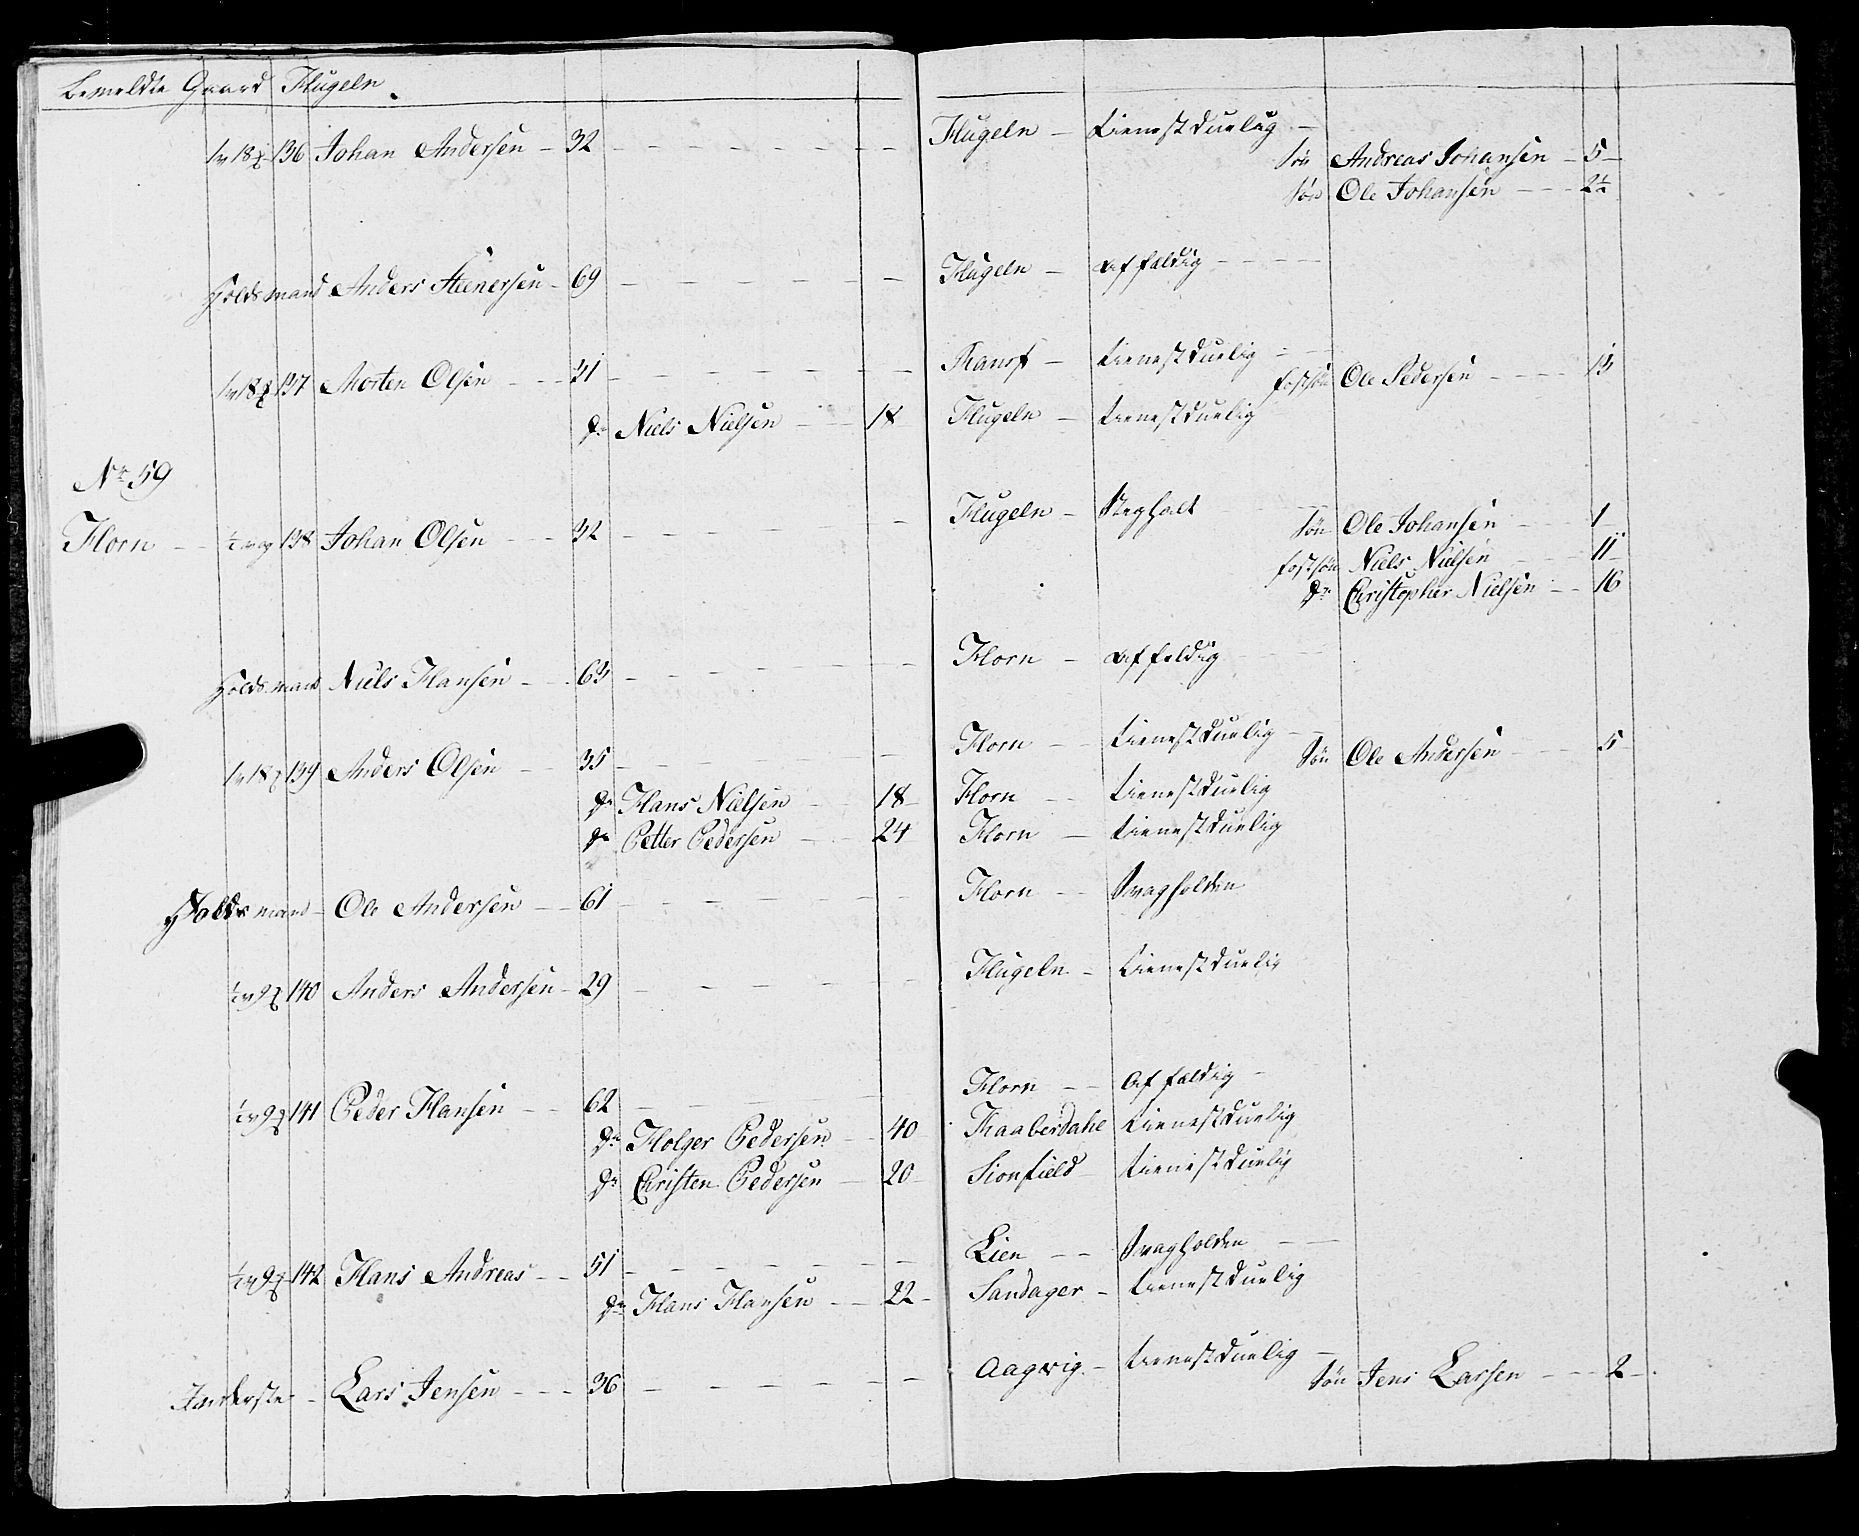 Bemeldte Gaard Hugeln.
1 v 18 136 Johan Andersen — 32 — Hugeln — tienestduelig —
Søn Andreas Johansen — 5 —
Søn Ole Johansen — 2½
Holdsmand Anders Steenersen — 69 — Hugeln — affeldig —
1 v 18 137 Morten Olsen — 31 — — tienestduelig —
fostsøn Ole Pedersen — 13
Do Niels Nielsen — 18 Hugeln — tienestduelig
No 59
Horn — ½ vog 138 Johan Olsen — 32 — Hugeln —
Søn Ole Johansen — 1
fostsøn Niels Nielsen — 11
Do Christopher Nielsen — 16
Holdsmand Niels Hansen — 63 — Horn — affeldig —
1 v 18 139 Anders Olsen — 35 — Horn — tienestduelig —
Søn Ole Andersen — 5
Do Hans Nielsen — 18 — Horn — tienestduelig
Do Petter Pedersen — 24 Horn — tienestduelig
Holdsmand — Ole Andersen — 61 — Horn — Svagholden
½ v 9 140 Anders Andersen — 29 — Hugeln — tienestduelig
½ v 9 141 Peder Hansen — 62 — Horn — Affeldig —
Do Holger Pedersen — 40 Haaberdahl tienestduelig
Do Christen Pedersen — 20 — Sionfield tienestduelig
½ v 9 142 Hans Andreas — 51 — Lien — Svagholden —
Do Hans Hansen — 22 — Sandager — tienestduelig
Inderste — Lars Jensen — 36 — Aagvig — tienestduelig —
Søn Jens Larsen — 2 —